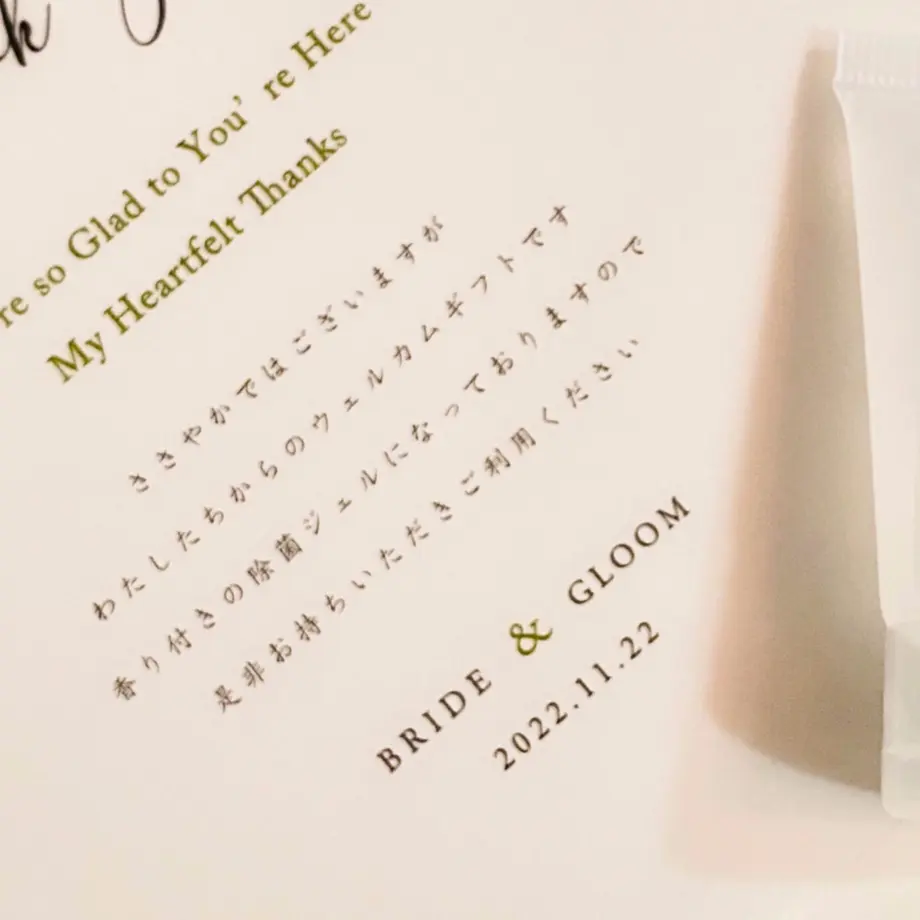 so Glad to You're Here
My Heartfelt Thanks
ささやかではございますが
わたしたちからのウェルカムギフトです
香り付きの除菌ジェルになっておりますので
是非お持ちいただきご利用ください
BRIDE & GLOOM
2022.11.22